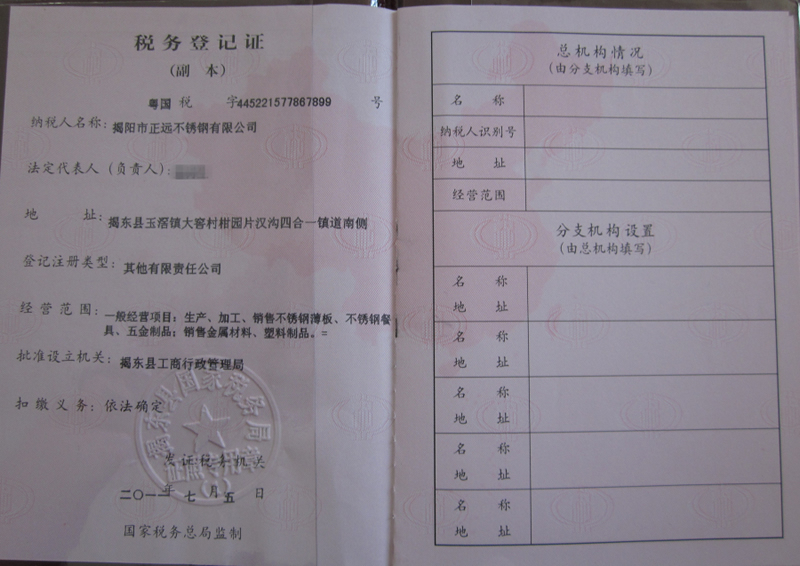 税务登记证
(副 本)
粤国 税 字445221577867899 号
纳税人名称:揭阳市正远不锈钢有限公司
法定代表人(负责人):
地 址:揭东县玉滘镇大窖村柑园片汉沟四合一镇道南侧
登记注册类型:其他有限责任公司
经营范围:一般经营项目:生产、加工、销售不锈钢薄板、不锈钢餐
具、五金制品;销售金属材料、塑料制品。=
批准设立机关:揭东县工商行政管理局
扣缴义务:依法确定
揭东县国家税务局
证照专用章
发证税务机关
二〇一一年七月五日
国家税务总局监制
总机构情况
(由分支机构填写)
名 称
纳税人识别号
地 址
经营范围
分支机构设置
(由总机构填写)
名 称
地 址
名 称
地 址
名 称
地 址
名 称
地 址
名 称
地 址